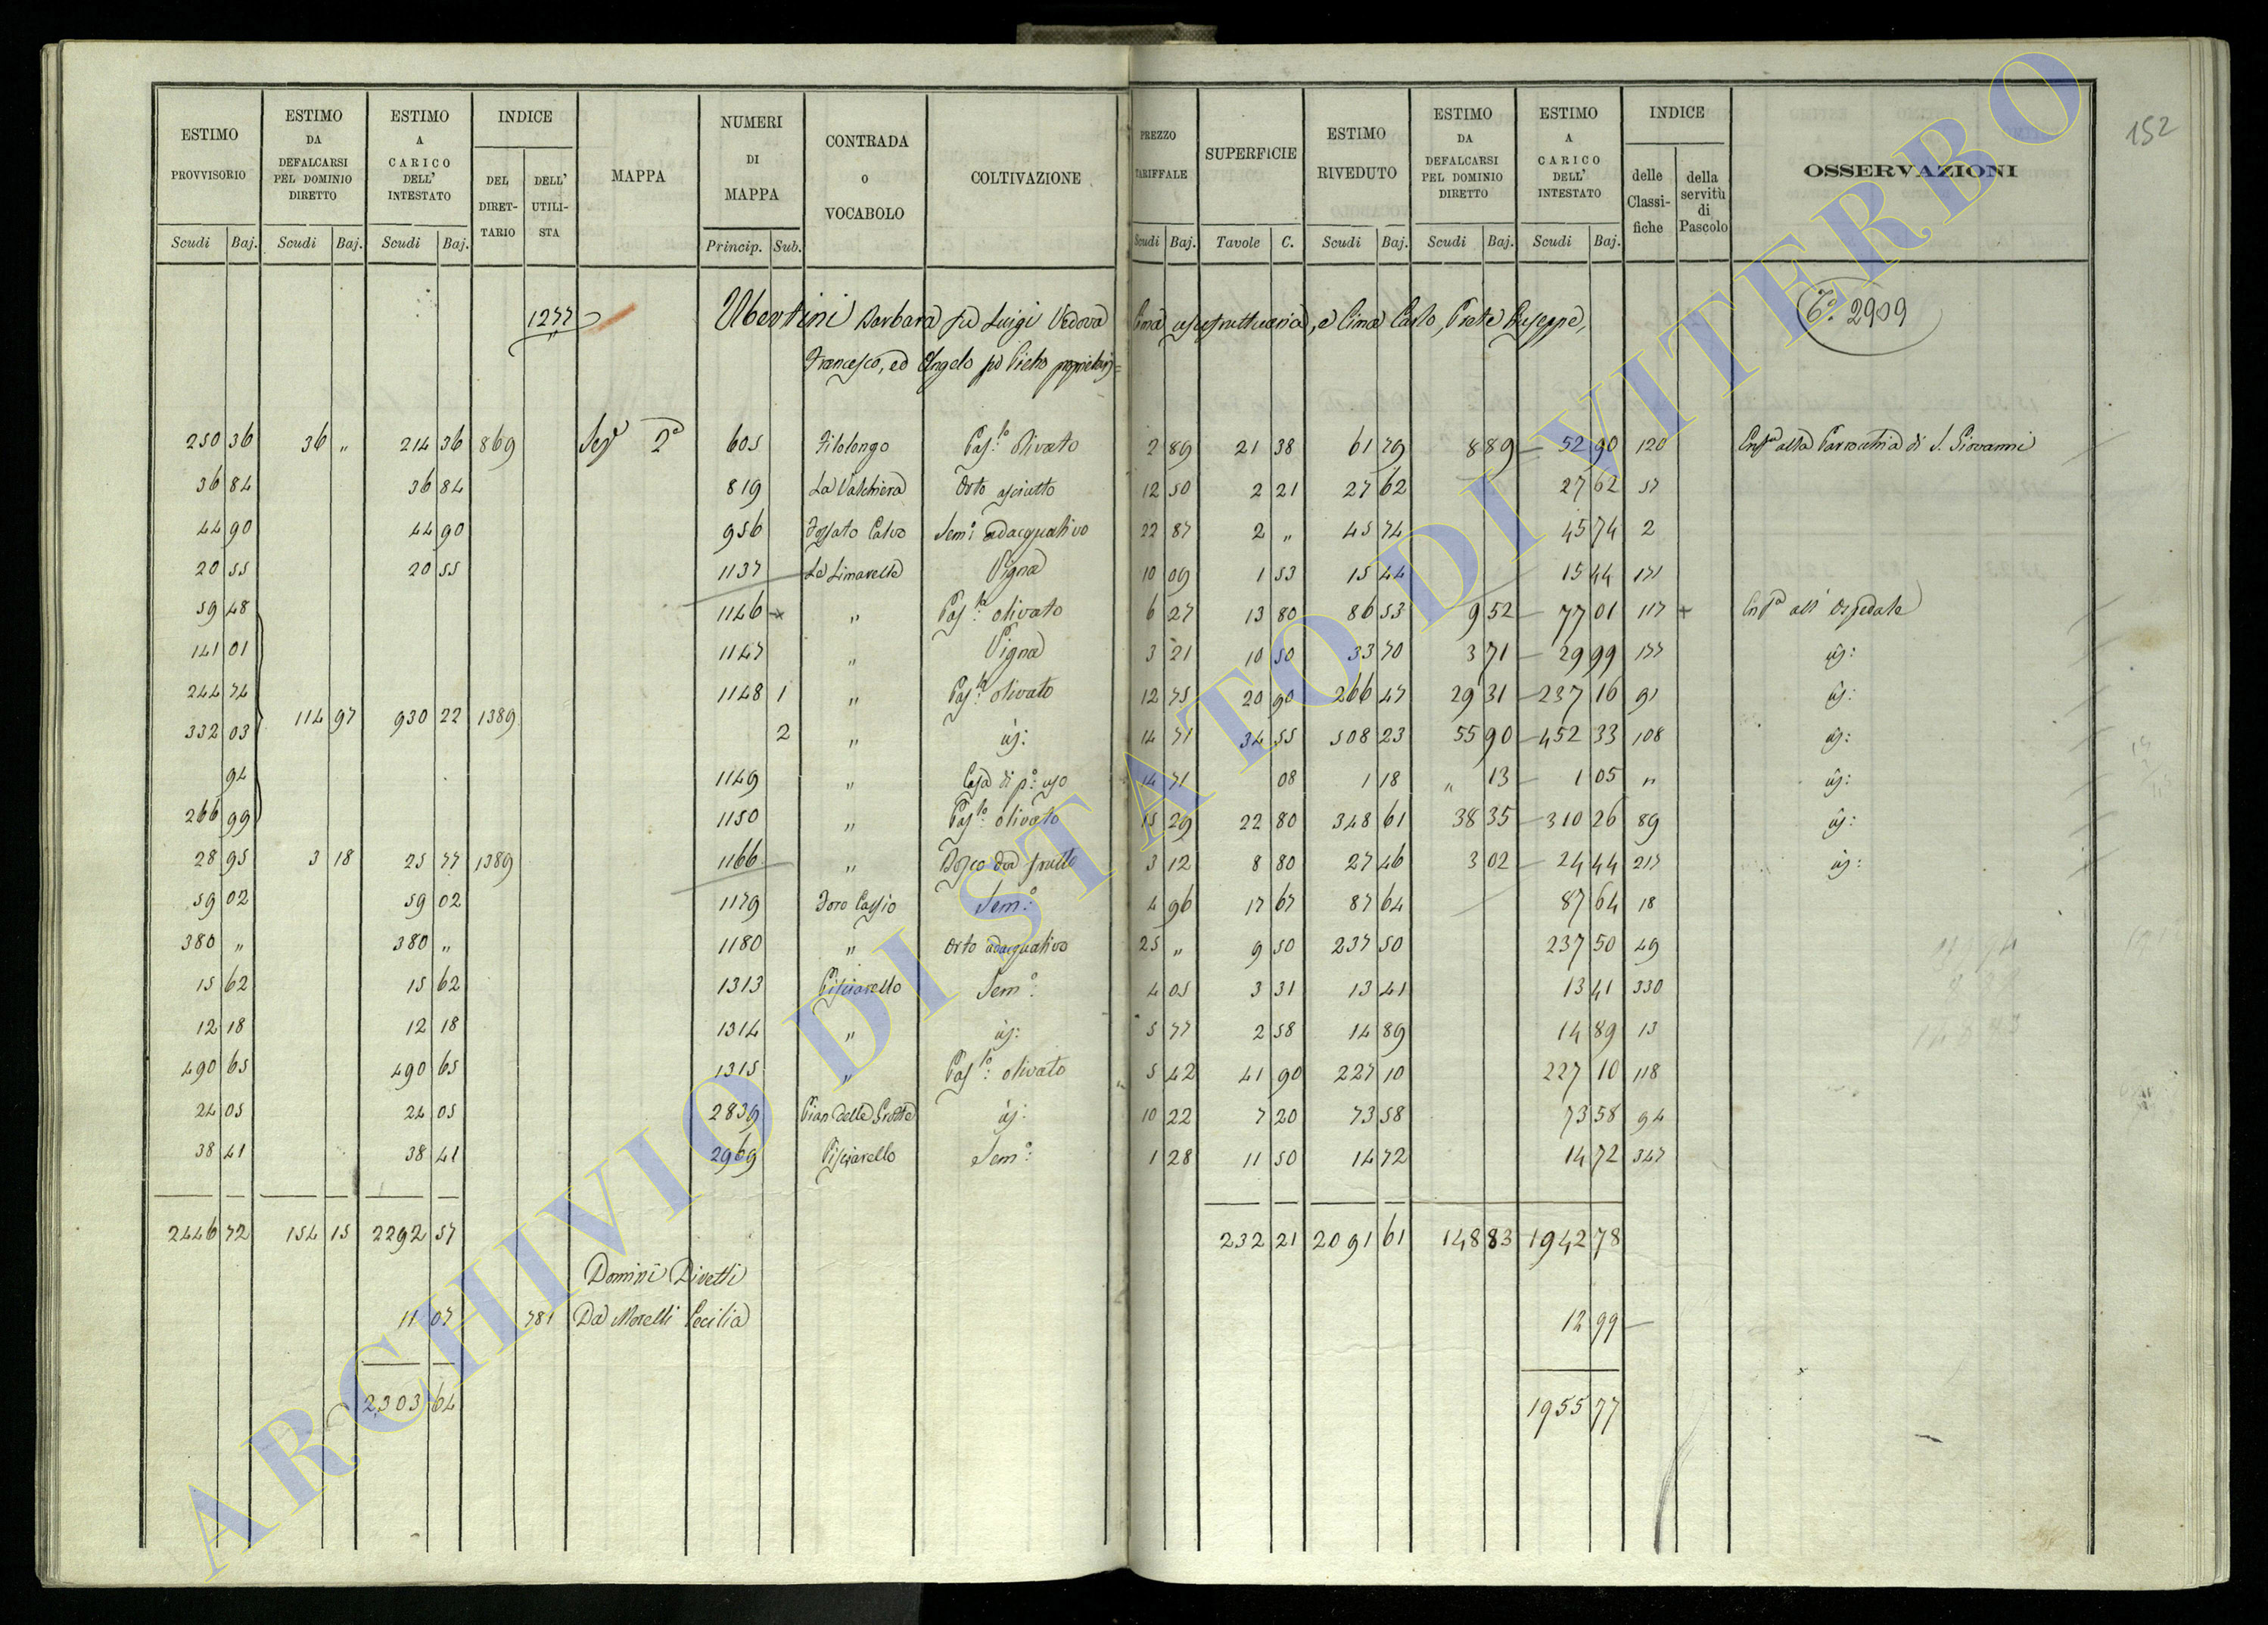 152
ESTIMO PROVVISORIO | ESTIMO DA DEFALCARSI PEL DOMINIO DIRETTO | ESTIMO A CARICO DELL' INTESTATO | INDICE DEL DIRETTARIO | DELL' UTILISTA | MAPPA | NUMERI DI MAPPA | CONTRADA O VOCABOLO | COLTIVAZIONE | PREZZO TARIFFALE | SUPERFICIE | ESTIMO RIVEDUTO | ESTIMO DA DEFALCARSI PEL DOMINIO DIRETTO | ESTIMO A CARICO DELL' INTESTATO | INDICE delle Classifiche | della servitù di Pascolo | OSSERVAZIONI
Scudi Baj. | Scudi Baj. | Scudi Baj. | Princip. Sub. | Scudi Baj. | Tavole C. | Scudi Baj. | Scudi Baj. | Scudi Baj.
1277 Ubertini Barbara fu Luigi Vedova Cima usufruttuaria, e Cima Carlo, Prete Giuseppe, To. 2909
Francesco, ed Angelo fu Pietro proprietarj =
250 36 | 36 „ | 214 36 | 869 | Sez.e 2a | 605 | Filolongo | Pas.lo olivato | 2 89 | 21 38 | 61 79 | 8 89 | 52 90 | 120 | Enf.a alla Parrocchia di S. Giovanni
36 84 | 36 84 | 819 | La Valchiera | Orto asciutto | 12 50 | 2 21 | 27 62 | 27 62 | 57
44 90 | 44 90 | 956 | Fossato Calvo | Sem.o adacquativo | 22 87 | 2 „ | 45 74 | 45 74 | 2
20 55 | 20 55 | 1137 | La Limarella | Vigna | 10 09 | 1 53 | 15 44 | 15 44 | 171
59 48 | 1146 | „ | Pas.lo olivato | 6 27 | 13 80 | 86 53 | 9 52 | 77 01 | 117 | + | Enf.a all' Ospedale
141 01 | 1147 | „ | Vigna | 3 21 | 10 50 | 33 70 | 3 71 | 29 99 | 177 | id:
244 74 | 1148 1 | „ | Pas.lo olivato | 12 75 | 20 90 | 266 47 | 29 31 | 237 16 | 91 | id:
332 03 | 114 97 | 930 22 | 1389 | 2 | „ | id: | 14 71 | 34 55 | 508 23 | 55 90 | 452 33 | 108 | id:
94 | 1149 | „ | Casa di p.o uso | 14 71 | 08 | 1 18 | „ 13 | 1 05 | „ | id:
266 99 | 1150 | „ | Pas.lo olivato | 15 29 | 22 80 | 348 61 | 38 35 | 310 26 | 89 | id:
28 95 | 3 18 | 25 77 | 1389 | 1166 | „ | Bosco da frutto | 3 12 | 8 80 | 27 46 | 3 02 | 24 44 | 217 | id:
59 02 | 59 02 | 1179 | Foro Cassio | Sem.o | 4 96 | 17 67 | 87 64 | 87 64 | 18
380 „ | 380 „ | 1180 | „ | Orto adacquativo | 25 „ | 9 50 | 237 50 | 237 50 | 49
15 62 | 15 62 | 1313 | Pisciarello | Sem.o | 4 05 | 3 31 | 13 41 | 13 41 | 330
12 18 | 12 18 | 1314 | „ | id: | 5 77 | 2 58 | 14 89 | 14 89 | 13
490 65 | 490 65 | 1315 | „ | Pas.lo olivato | 5 42 | 41 90 | 227 10 | 227 10 | 118
24 05 | 24 05 | 2839 | Pian delle Grotte | id: | 10 22 | 7 20 | 73 58 | 73 58 | 94
38 41 | 38 41 | 2969 | Pisciarello | Sem.o | 1 28 | 11 50 | 14 72 | 14 72 | 347
2446 72 | 154 15 | 2292 57 | 232 21 | 2091 61 | 148 83 | 1942 78
Domini Diretti
11 07 | 781 | Da Morelli Cecilia | 12 99
2303 64 | 1955 77
ARCHIVIO DI STATO DI VITERBO